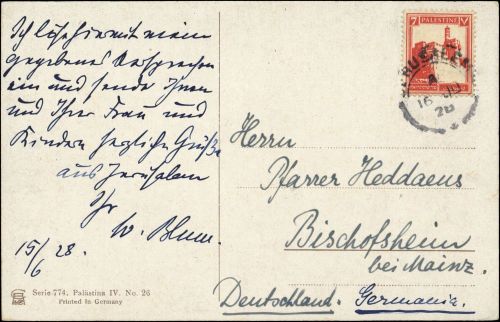 Ich löse hiermit mein
gegebenes Versprechen
ein und sende Ihnen
und Ihrer Frau und
Kindern herzliche Grüße
aus Jerusalem
Ihr
W. Blum.
15/6 28.
Serie 774. Palästina IV. No. 26
Printed in Germany
7 PALESTINE ٧
JERUSALEM
16 JU
28
Herrn
Pfarrer Heddaeus
Bischofsheim
bei Mainz.
Deutschland. Germania.